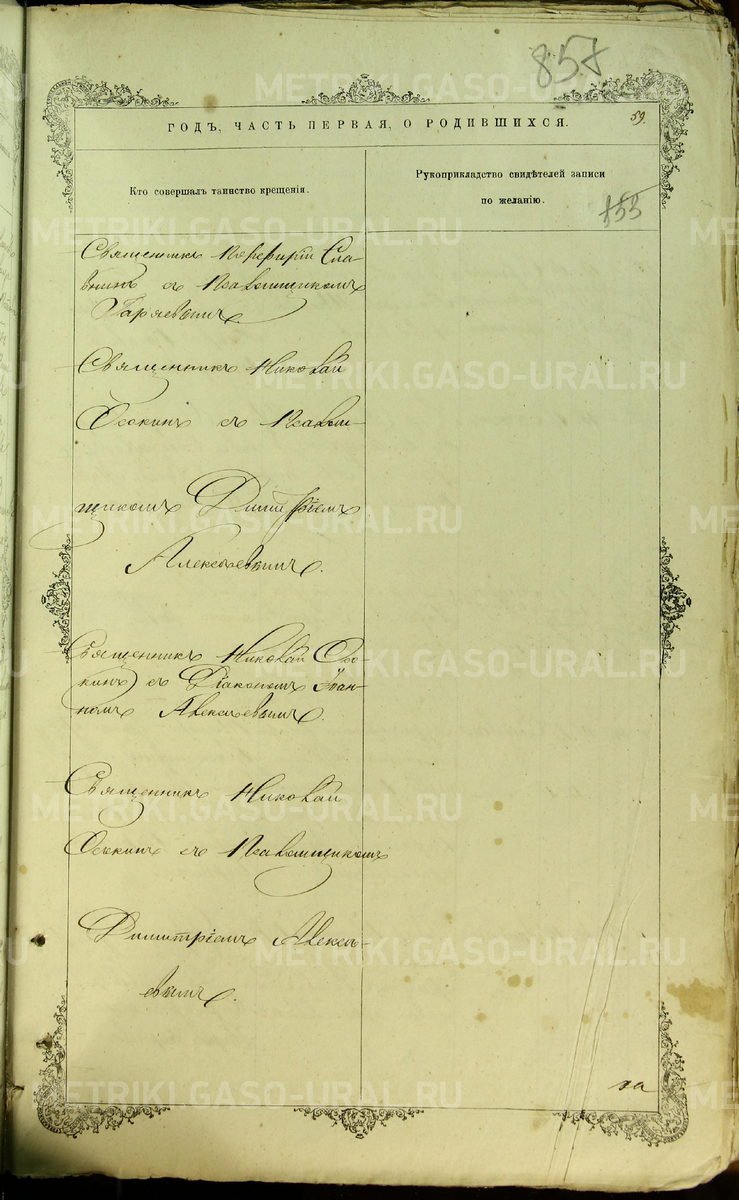 857
59.
ГОДЪ, ЧАСТЬ ПЕРВАЯ, О РОДИВШИХСЯ.
Кто совершалъ таинство крещенія.
Рукоприкладство свидѣтелей записи
по желанію.
155
Священникъ Порфирій Сла-
внинъ съ Псаломщикомъ
Гаряевымъ.
Священникъ Николай
Осокинъ съ Псалом-
щикомъ Димитріемъ
Алексѣевымъ.
Священникъ Николай Осо-
кинъ съ Діакономъ Іоан-
номъ Алексѣевымъ.
Священникъ Николай
Осокинъ съ Псаломщикомъ
Димитріемъ Алексѣ-
евымъ.
METRIKI.GASO-URAL.RU